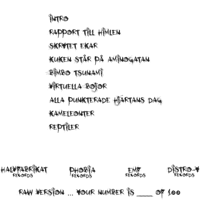 INTRO
RAPPORT TILL HIMLEN
SKRYTET EKAR
KUKEN STÅR PÅ AMINOGATAN
BIMBO TSUNAMI
VIRTUELLA BOJOR
ALLA PUNKTERADE HJÄRTANS DAG
KAMELEONTER
REPTILER
HALVFABRIKAT RECORDS PHOBIA RECORDS EMF RECORDS DISTRO-Y RECORDS
RAW VERSION ... YOUR NUMBER IS ____ OF 100